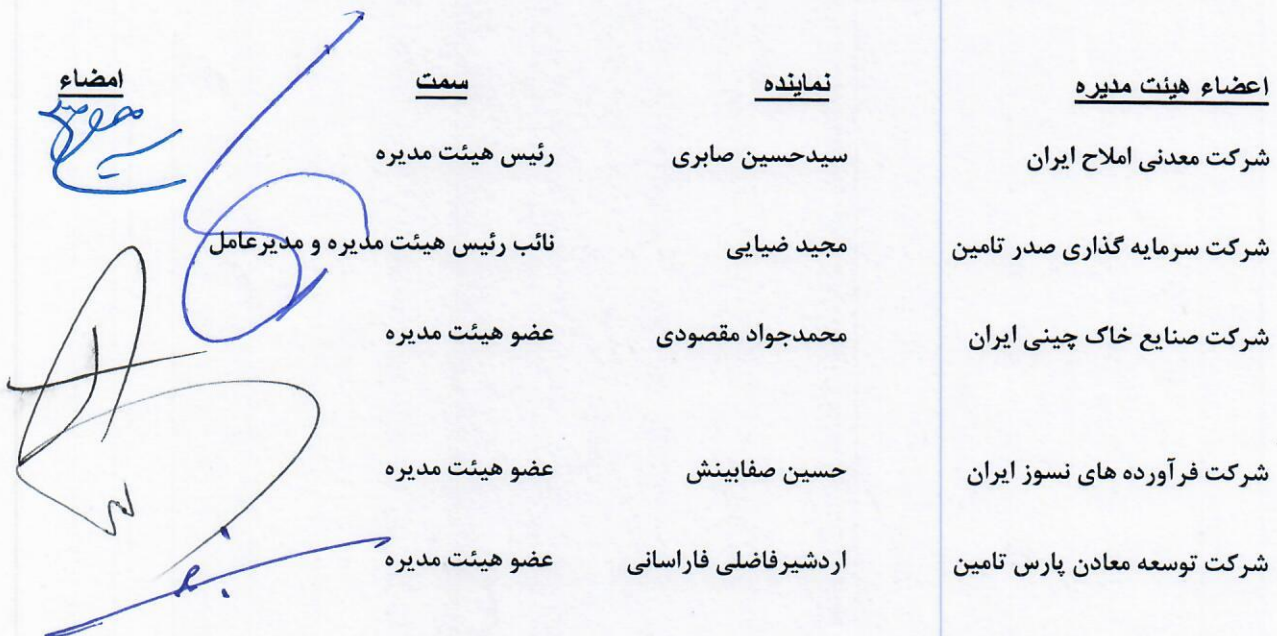 اعضاء هیئت مدیره نماینده سمت امضاء
شرکت معدنی املاح ایران سیدحسین صابری رئیس هیئت مدیره
شرکت سرمایه گذاری صدر تامین مجید ضیایی نائب رئیس هیئت مدیره و مدیرعامل
شرکت صنایع خاک چینی ایران محمدجواد مقصودی عضو هیئت مدیره
شرکت فرآورده های نسوز ایران حسین صفابینش عضو هیئت مدیره
شرکت توسعه معادن پارس تامین اردشیرفاضلی فاراسانی عضو هیئت مدیره